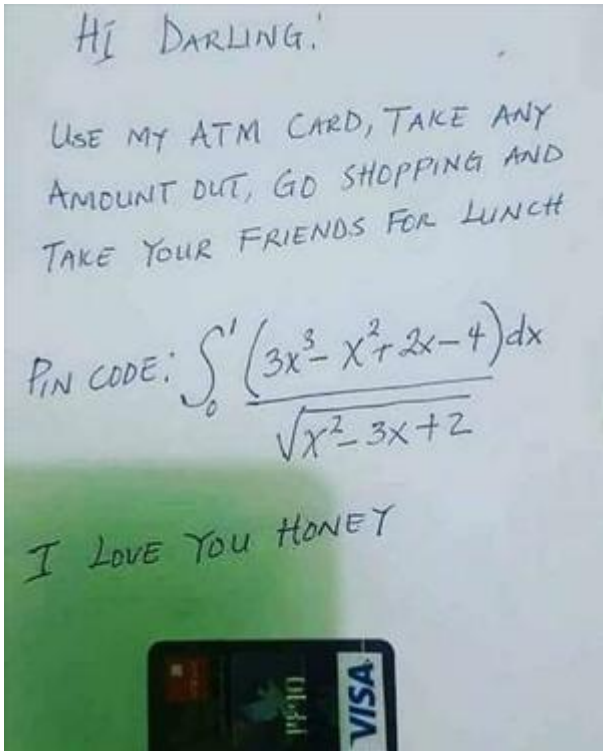 HI DARLING!
USE MY ATM CARD, TAKE ANY
AMOUNT OUT, GO SHOPPING AND
TAKE YOUR FRIENDS FOR LUNCH
PIN CODE: ∫₀¹ (3x³ - x² + 2x - 4) dx / √(x² - 3x + 2)
I LOVE YOU HONEY
VISA